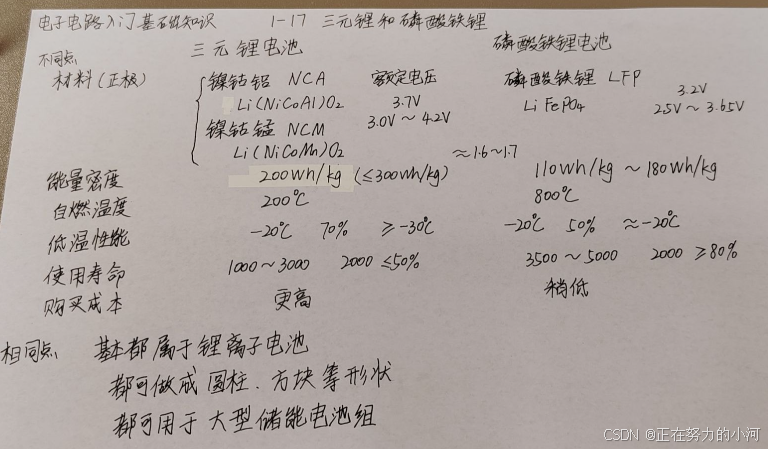 电子电路入门基础知识 1-17 三元锂和磷酸铁锂
不同点 三元锂电池 磷酸铁锂电池
材料(正极) 镍钴铝 NCA 额定电压 磷酸铁锂 LFP 3.2V
Li(NiCoAl)O2 3.7V LiFePO4 2.5V~3.65V
镍钴锰 NCM 3.0V~4.2V
Li(NiCoMn)O2 ≈1.6~1.7
能量密度 200Wh/kg (≤300Wh/kg) 110Wh/kg~180Wh/kg
自燃温度 200℃ 800℃
低温性能 -20℃ 70% ≥-30℃ -20℃ 50% ≈-20℃
使用寿命 1000~3000 2000 ≤50% 3500~5000 2000 ≥80%
购买成本 更高 稍低
相同点 基本都属于锂离子电池
都可做成圆柱、方块等形状
都可用于大型储能电池组
CSDN @正在努力的小河